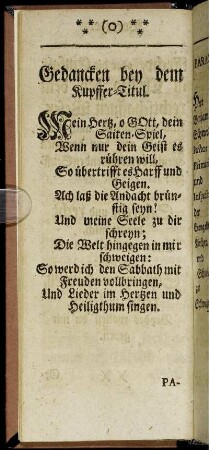 ** (o) **
Gedancken bey dem
Kupffer-Titul.
Mein Hertz, o GOtt, dein
Saiten-Spiel,
Wenn nur dein Geist es
rühren will,
So übertrifft es Harff und
Geigen.
Ach laß die Andacht brün-
stig seyn!
Und meine Seele zu dir
schreyn;
Die Welt hingegen in mir
schweigen:
So werd ich den Sabbath mit
Freuden vollbringen,
Und Lieder im Hertzen und
Heiligthum singen.
PA-